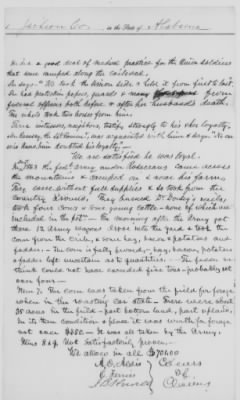 Jackson Co. in the State of Alabama
He did a good deal of medical practice for the Union soldiers
that were camped along the railroad.
He says "He took the Union side & held it from first to last.
He had protection papers, guards & many from
federal officers both before & after her husband's death.
The rebels took two horses from him.
Three witnesses, neighbors, testify strongly to his open loyalty,
was acquainted with him & says "No one
ever heard him doubted his loyalty"
We are satisfied he was loyal.
1863 the fed army under Rosecrans came across
the mountains & camped on & near his farm.
They came without full supplies & so took from the
Country around. They
took four cows & one young cattle - none of which are
included in the pet - The morning after the Army got
there 12 Army wagons drove into the yard & took the
corn from the crib, & some hay, bacon & potatoes and
fodder - The corn is fully proved, - hay, bacon, potatoes
& fodder left uncertain as to quantities. - The fodder we
think could not have exceeded five tons - probably not
over four -
Item 7. The corn was taken from the field for forage
when in the roasting ear state - There were about
35 acres in the field - part bottom land, part upland.
In its then condition & place it was worth for forage
not over $250. - It was all taken by the Army.
Items 8 & 9. Not Satisfactorily proven.
We allow in all $701.00
A. O. Aldis
O. Ferriss
J. B. Howell
Com'rs
of
Claims